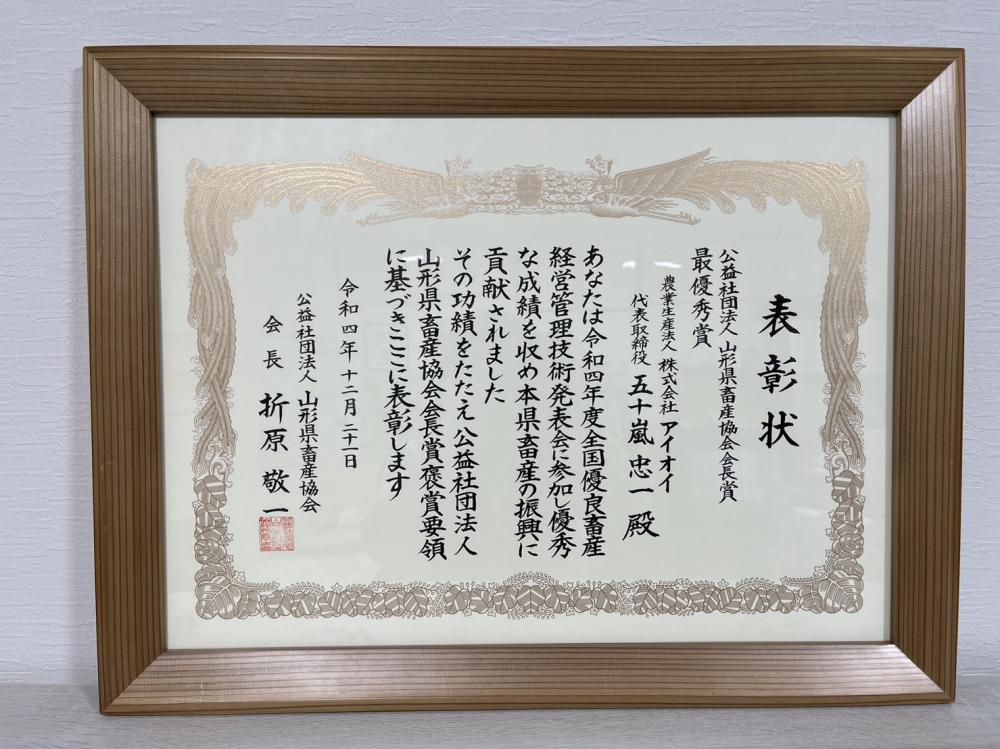 表彰状
公益社団法人 山形県畜産協会会長賞
最優秀賞
農業生産法人 株式会社 アイオイ
代表取締役 五十嵐 忠一 殿
あなたは令和四年度全国優良畜産
経営管理技術発表会に参加し優秀
な成績を収め本県畜産の振興に
貢献されました
その功績をたたえ公益社団法人
山形県畜産協会会長賞褒賞要領
に基づきここに表彰します
令和四年十二月二十一日
公益社団法人 山形県畜産協会
会長 折原 敬一